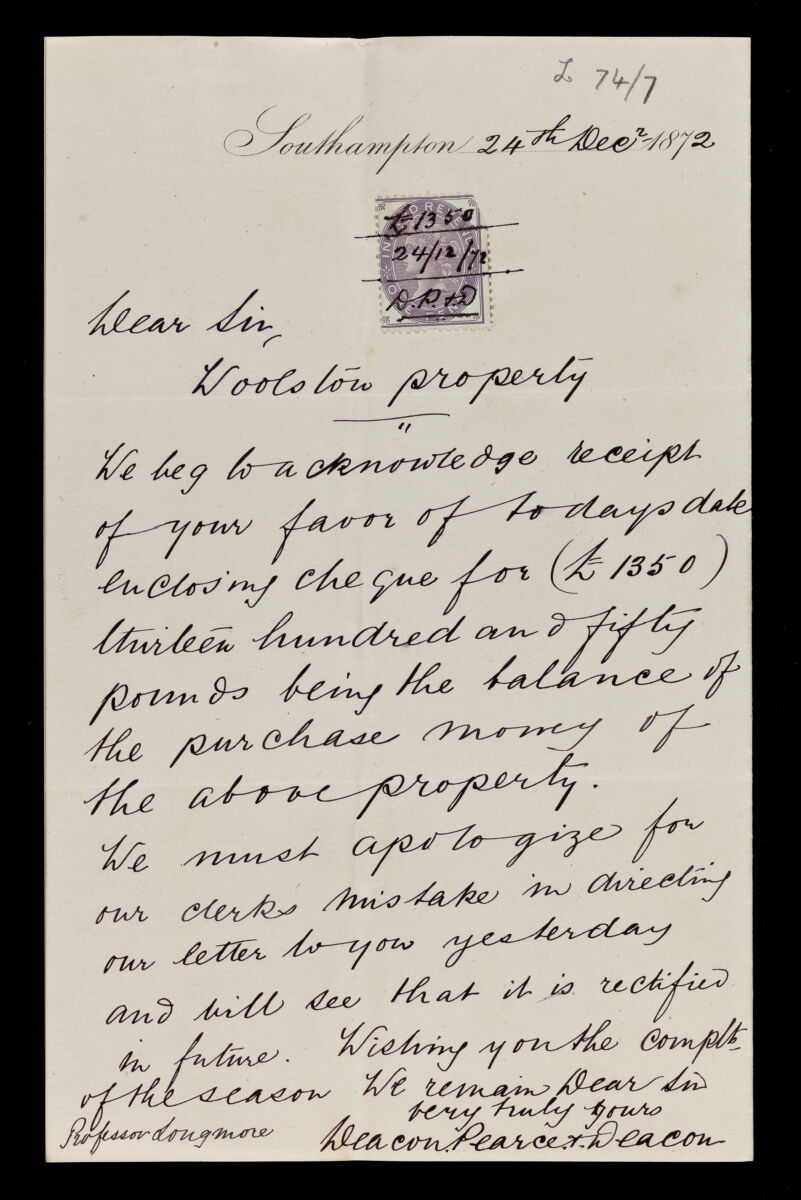 L 74/7
Southampton 24th Decr 1872
INLAND REVENUE
£1350
24/12/72
D.P. & D
Dear Sir,
Woolston property
We beg to acknowledge receipt
of your favor of todays date
enclosing cheque for (£1350)
thirteen hundred and fifty
pounds being the balance of
the purchase money of
the above property.
We must apologize for
our clerks mistake in directing
our letter to you yesterday
and will see that it is rectified
in future. Wishing you the complts
of the season We remain Dear Sir
very truly yours
Professor Longmore Deacon Pearce & Deacon